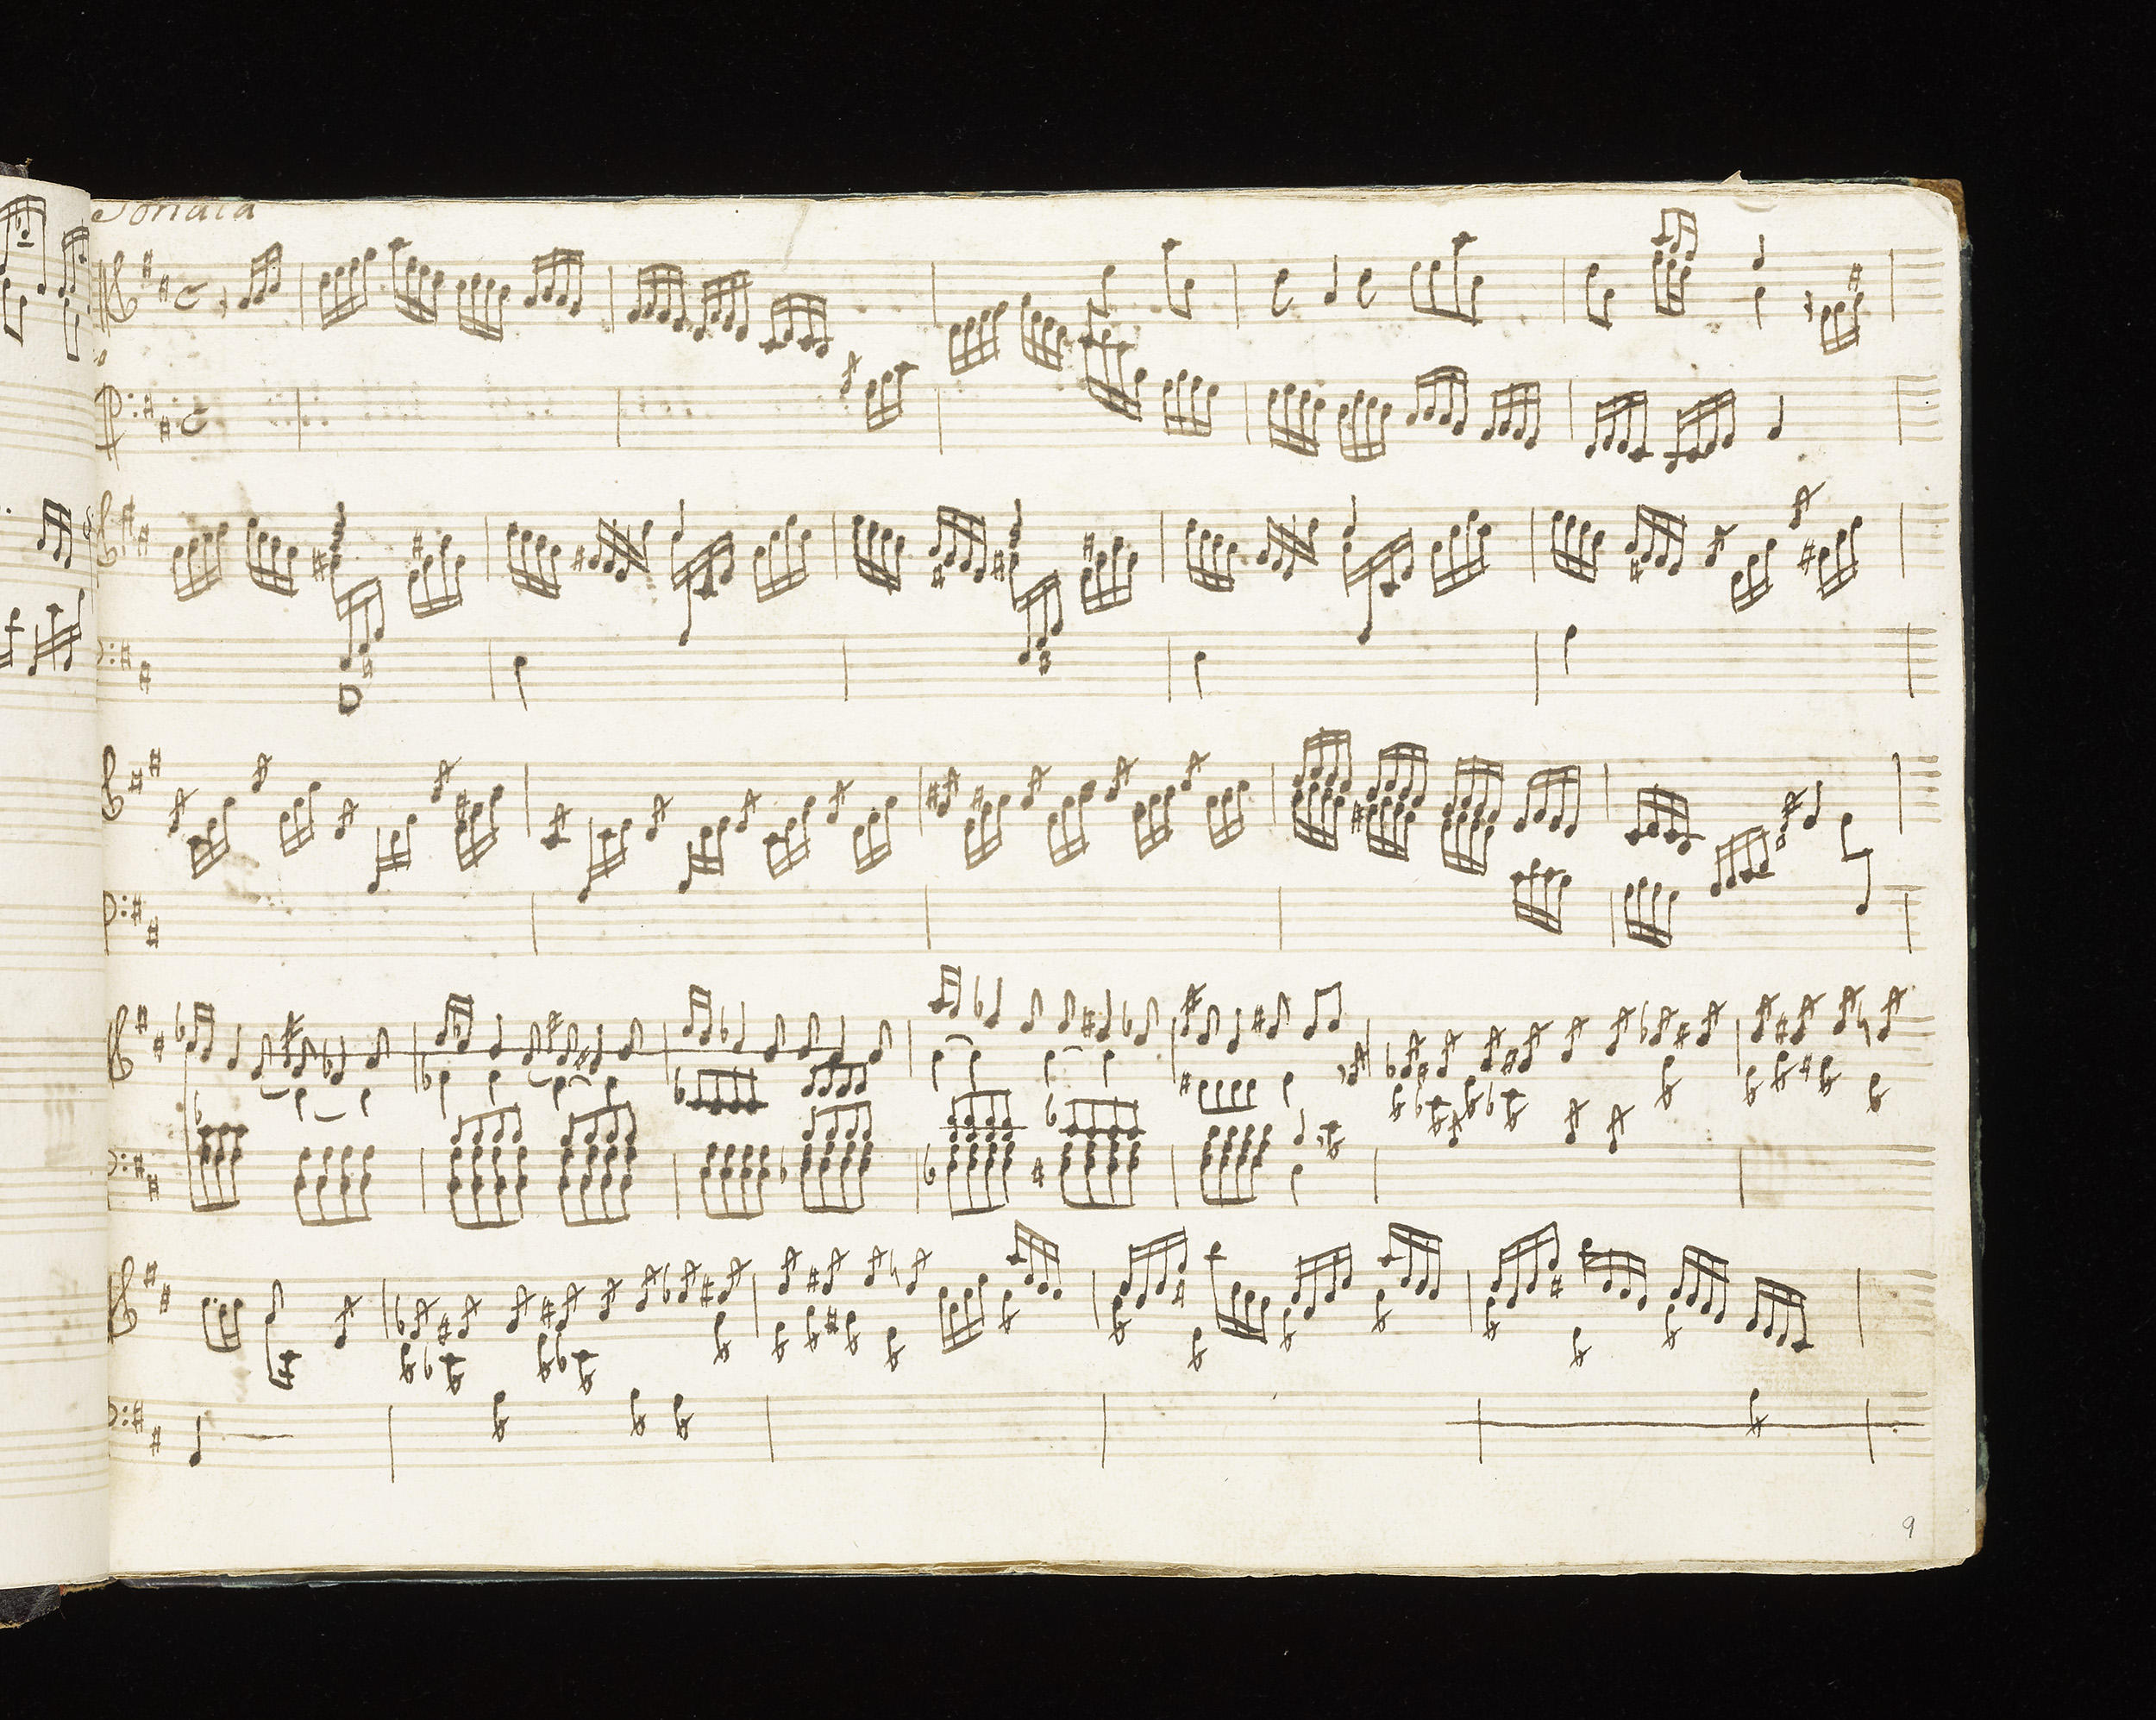 Sonata
9